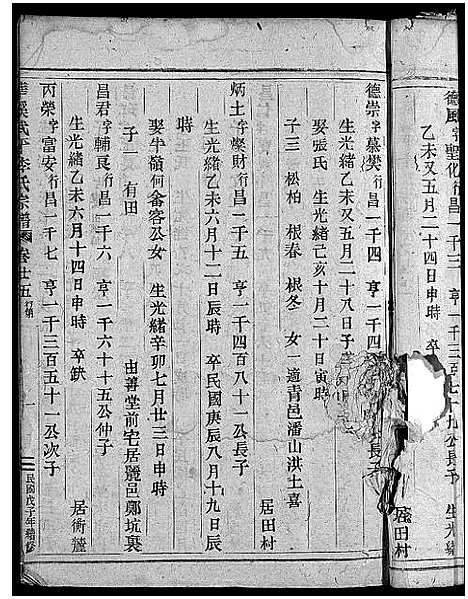 德風字聖化行昌一千三 亨一千三百七十九公長子 生光緒
乙未又五月二十四日申時 卒 居田村
德崇字慕樊行昌一千四 亨一千四 長子
生光緒乙未又五月二十八日子
娶張氏 生光緒己亥十月二十日寅時
子三 松柏 根春 根冬 女一適青邑潘山洪土喜
居田村
炳土字燦財行昌一千五 亨一千四百八十一公長子
生光緒乙未六月十二日辰時 卒民國庚辰八月十九日辰
時
娶半嶺何畲客公女 生光緒辛卯七月廿三日申時
子一 有田 由善堂前宅居麗邑鄭坑裏
昌君字輔良行昌一千六 亨一千六十五公仲子
生光緒乙未六月十四日申時 卒缺 居術籠
丙榮字富安行昌一千七 亨一千三百五十一公次子
武平李氏宗譜 卷廿五 行第 一 民國戊子年續修